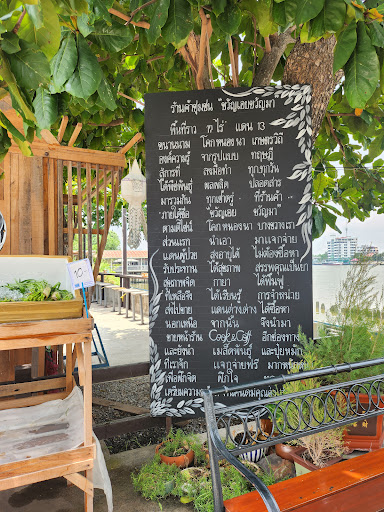 ร้านค้าชุมชน "ขวัญเอยขวัญมา"
พื้นที่ราว ๗ ไร่ แดน 13
ขนานนาม โคก หนอง นา เกษตรวิถี
องค์ความรู้ จากรูปแบบ ทฤษฎี
สู่การที่ ลงมือทำ ทุกทุกวัน
ได้พืชพันธุ์ พอผลิต ปลอดสาร
มารวมกัน ทุกเส้าตรู่ ที่ร้านค้า
"ภายใต้ชื่อ ขวัญเอย ขวัญมา
ตามสไตน์ โคก หนองนา บางขวางเรา
ส่วนแรก นำเอา มาแจกจ่าย
แดนผู้ป่วย ส่งเอาผู้ได้
รับประทาน ได้สุขภาพ สรรพคุณเป็นยา
สุขภาพจิต กายา ได้ฟื้นฟู
ที่เหลือจึง ได้เรียนรู้ การจำหน่าย
รับส่งขาย แดนต่างต่าง ได้ซื้อหา
นอกเหนือ จากนั้น จึงนำมา
ขายหน้าร้าน Cook&Coff อีกช่องทาง
และยังนำ เมล็ดพันธุ์ และปุ๋ยหมัก
ที่เราจัก แจกจ่ายฟรี มากหรือ
เพื่อฝึกจิต ฝึกใจ
เตรียมความ
10